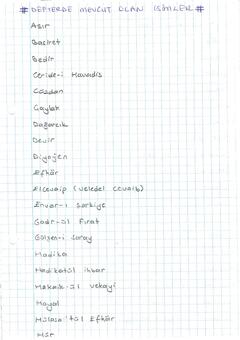 # DEFTERDE MEVCUT OLAN İSİMLER #
Asır
Basiret
Bedir
Ceride-i Havadis
Cosdan
Çaylak
Dağarcık
Devir
Diyojen
Efkâr
Elcevaip (veledel cevaib)
Envar-ı Şarkiye
Gadr-ül Fırat
Gülşen-i Saray
Hadika
Hadikatül ihbar
Hakaik-ül vekayi
Hayal
Hülasa'tül Efkâr